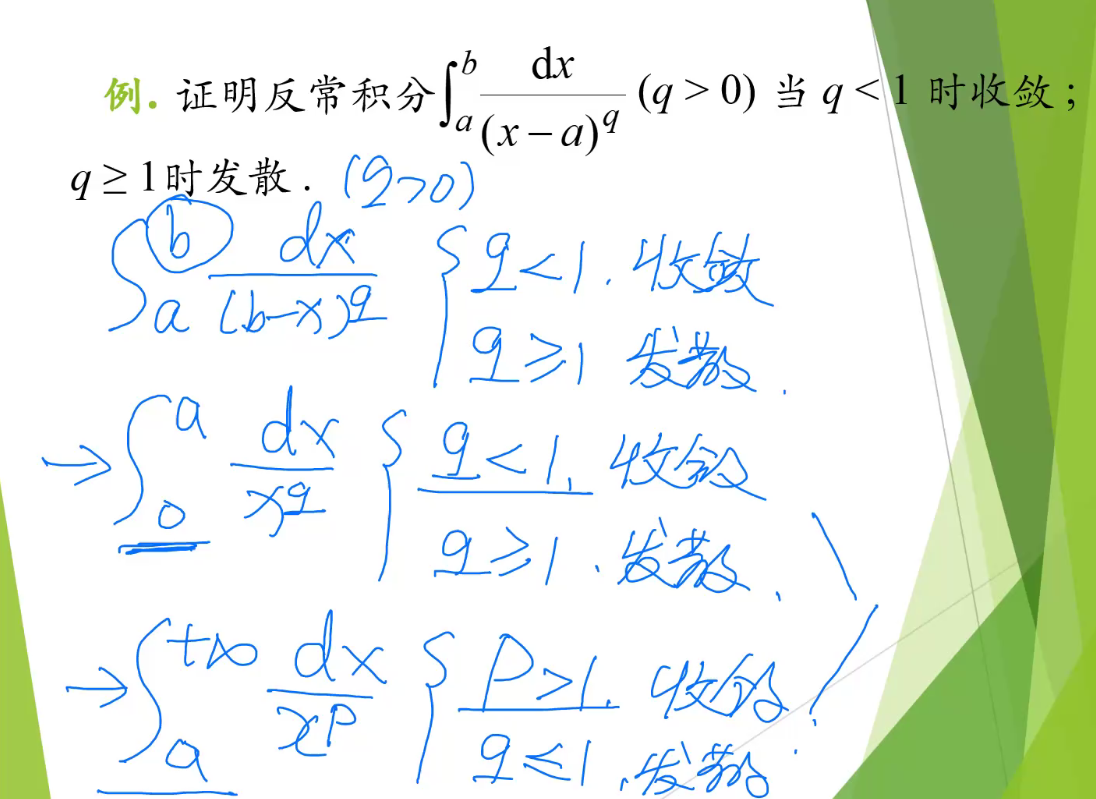 例. 证明反常积分 ∫_a^b dx/(x−a)^q (q > 0) 当 q < 1 时收敛;
q ≥ 1时发散. (q>0)
∫_a^b dx/(b-x)^q { q<1. 收敛
q≥1 发散.
→ ∫_0^a dx/x^q { q<1, 收敛
q≥1. 发散.
→ ∫_a^{+∞} dx/x^p { p>1. 收敛.
q≤1. 发散.